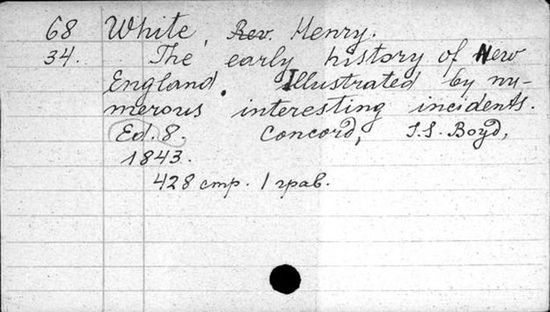 68 White, Rev. Henry.
34. The early history of New
England. Illustrated by nu-
merous interesting incidents.
Ed. 8. Concord, I.S. Boyd,
1843.
428 стр. 1 грав.